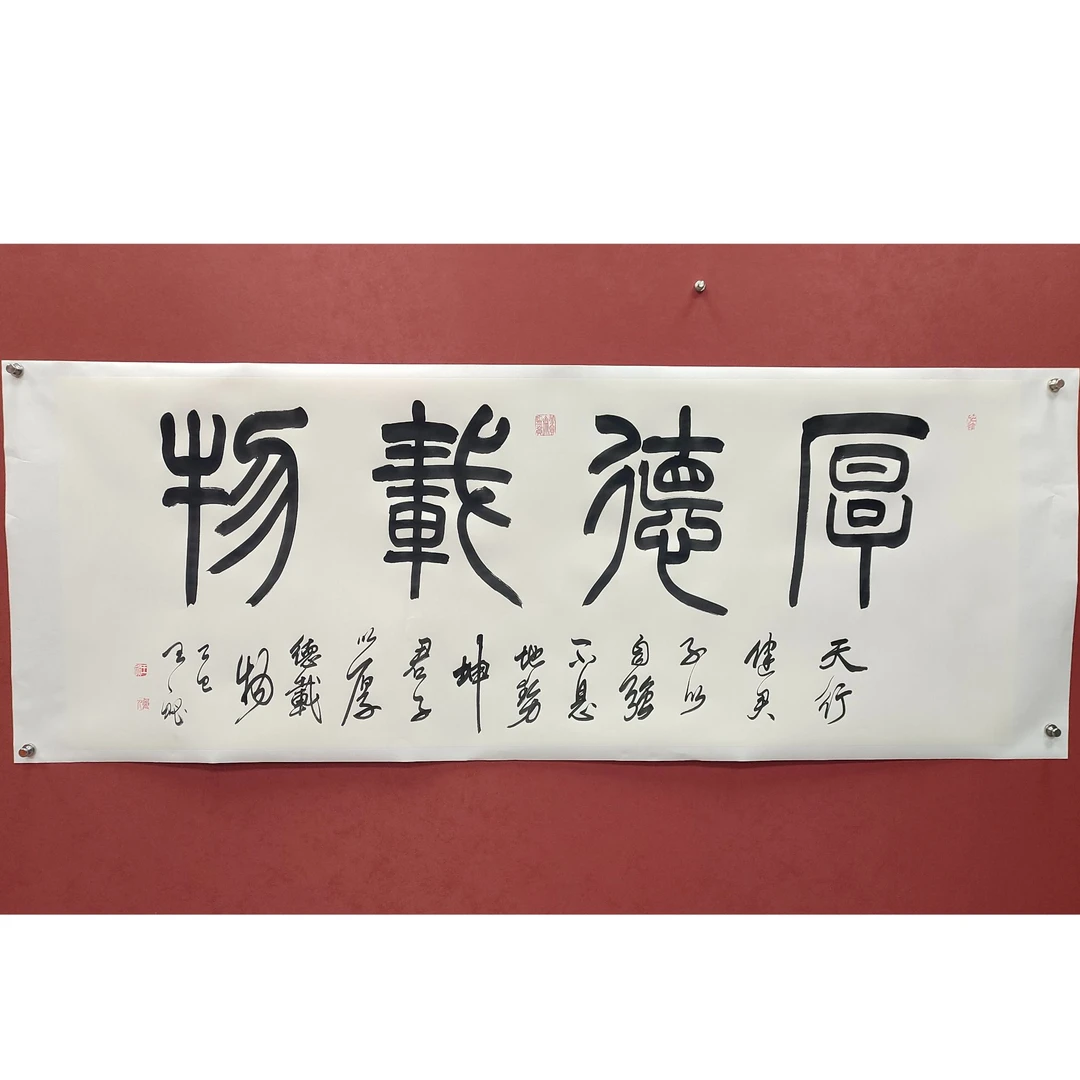 厚德載物
天行
健君
子以
自強
不息
地勢
坤
君子
以厚
德載
物
乙巳